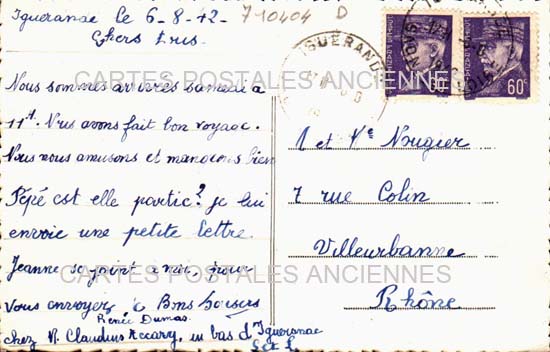 Iguerande le 6-8-42. 710404 D
Chers tous
Nous sommes arrivés samedi à
11h. Nous avons fait bon voyage.
Nous nous amusons et mangeons bien
Pépé est elle partie? je lui
envoie une petite lettre.
Jeanne se joint à moi pour
vous envoyer de Bons baisers
Renée Dumas.
chez M. Claudius Accary, en bas d'Iguerande
S et L
IGUERANDE
60c
60c
1 et Ve Nugier
7 rue Colin
Villeurbanne
Rhône
CARTES POSTALES ANCIENNES
CARTES POSTALES ANCIENNES